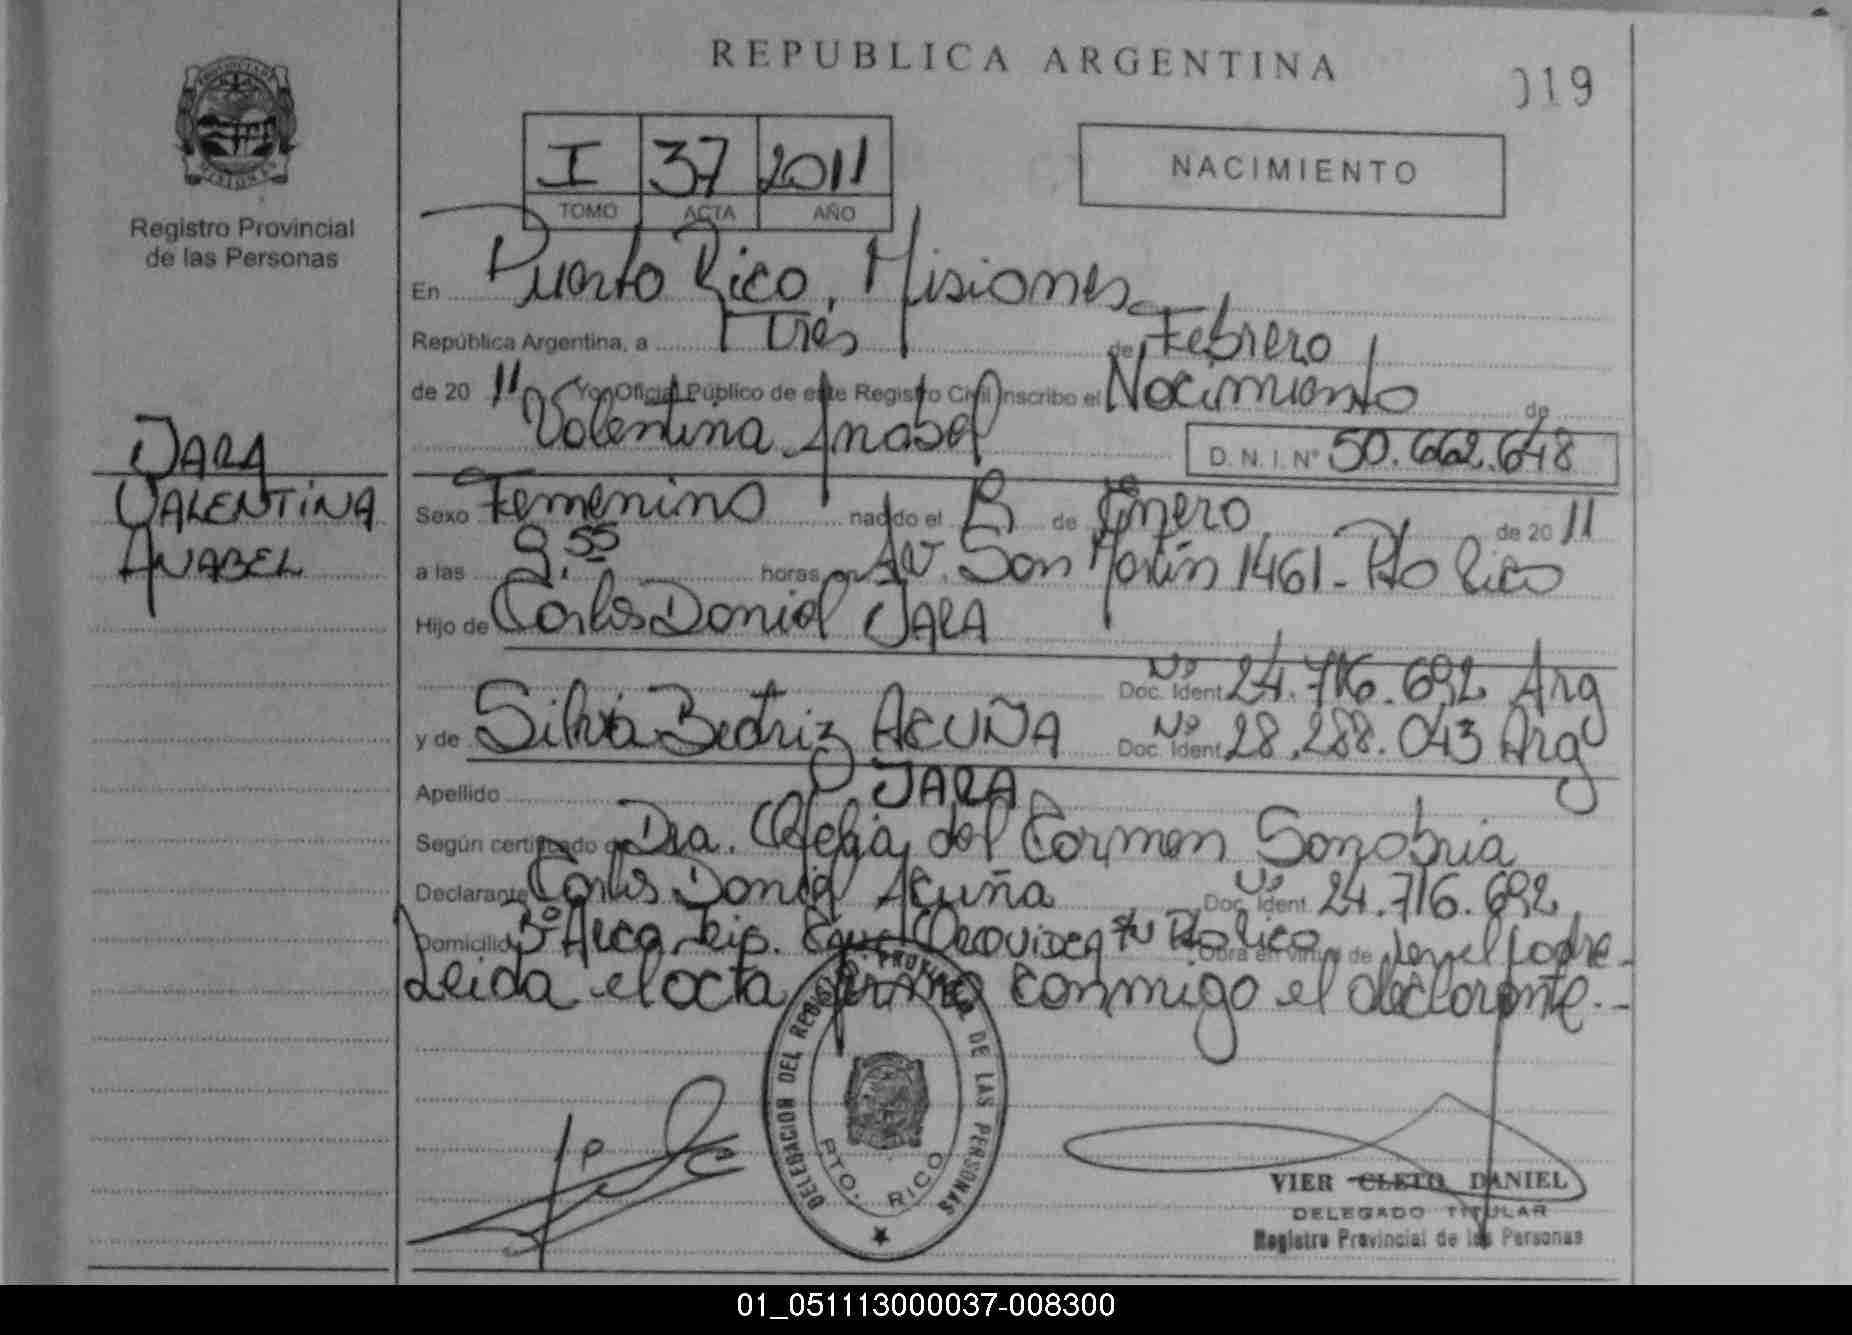 REPUBLICA ARGENTINA
019
PROVINCIA DE
MISIONES
Registro Provincial
de las Personas
I 37 2011
TOMO ACTA AÑO
NACIMIENTO
En Puerto Rico, Misiones
República Argentina, a Tres de Febrero
de 20 11 Yo, Oficial Público de este Registro Civil inscribo el Nacimiento de
Valentina Anabel D.N.I. N° 50.662.648
JARA
VALENTINA
ANABEL
Sexo Femenino nacido el de Enero de 20 11
a las 9.55 horas en Av. San Martín 1461 - Pto Rico
Hijo de Carlos Daniel JARA
Doc. Ident Nº 24.716.692 Arg
y de Silvia Beatriz ACUÑA Doc. Ident Nº 28.288.043 Arg
Apellido JARA
Según certificado de Dra. del Carmen Sanabria
Declarante Carlos Daniel Acuña Doc. Ident Nº 24.716.692
Domicilio Pto Rico Obra en virtud de ser el padre -
Leida el acta firma conmigo el declarante. -
DELEGACION DEL REGISTRO PROVINCIAL DE LAS PERSONAS
PTO. RICO
VIER CLETO DANIEL
DELEGADO TITULAR
Registro Provincial de las Personas
01_051113000037-008300